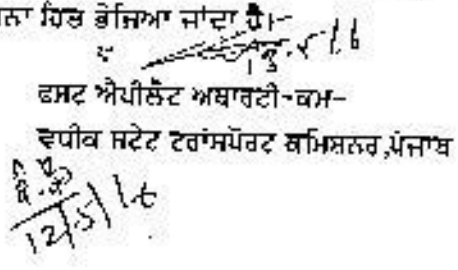 ਨਾ ਹਿਤ ਭੇਜਿਆ ਜਾਂਦਾ ਹੈ।-
ਫਸਟ ਐਪੀਲੈਟ ਅਥਾਰਟੀ-ਕਮ-
ਵਧੀਕ ਸਟੇਟ ਟਰਾਂਸਪੋਰਟ ਕਮਿਸ਼ਨਰ,ਪੰਜਾਬ
12/5/16